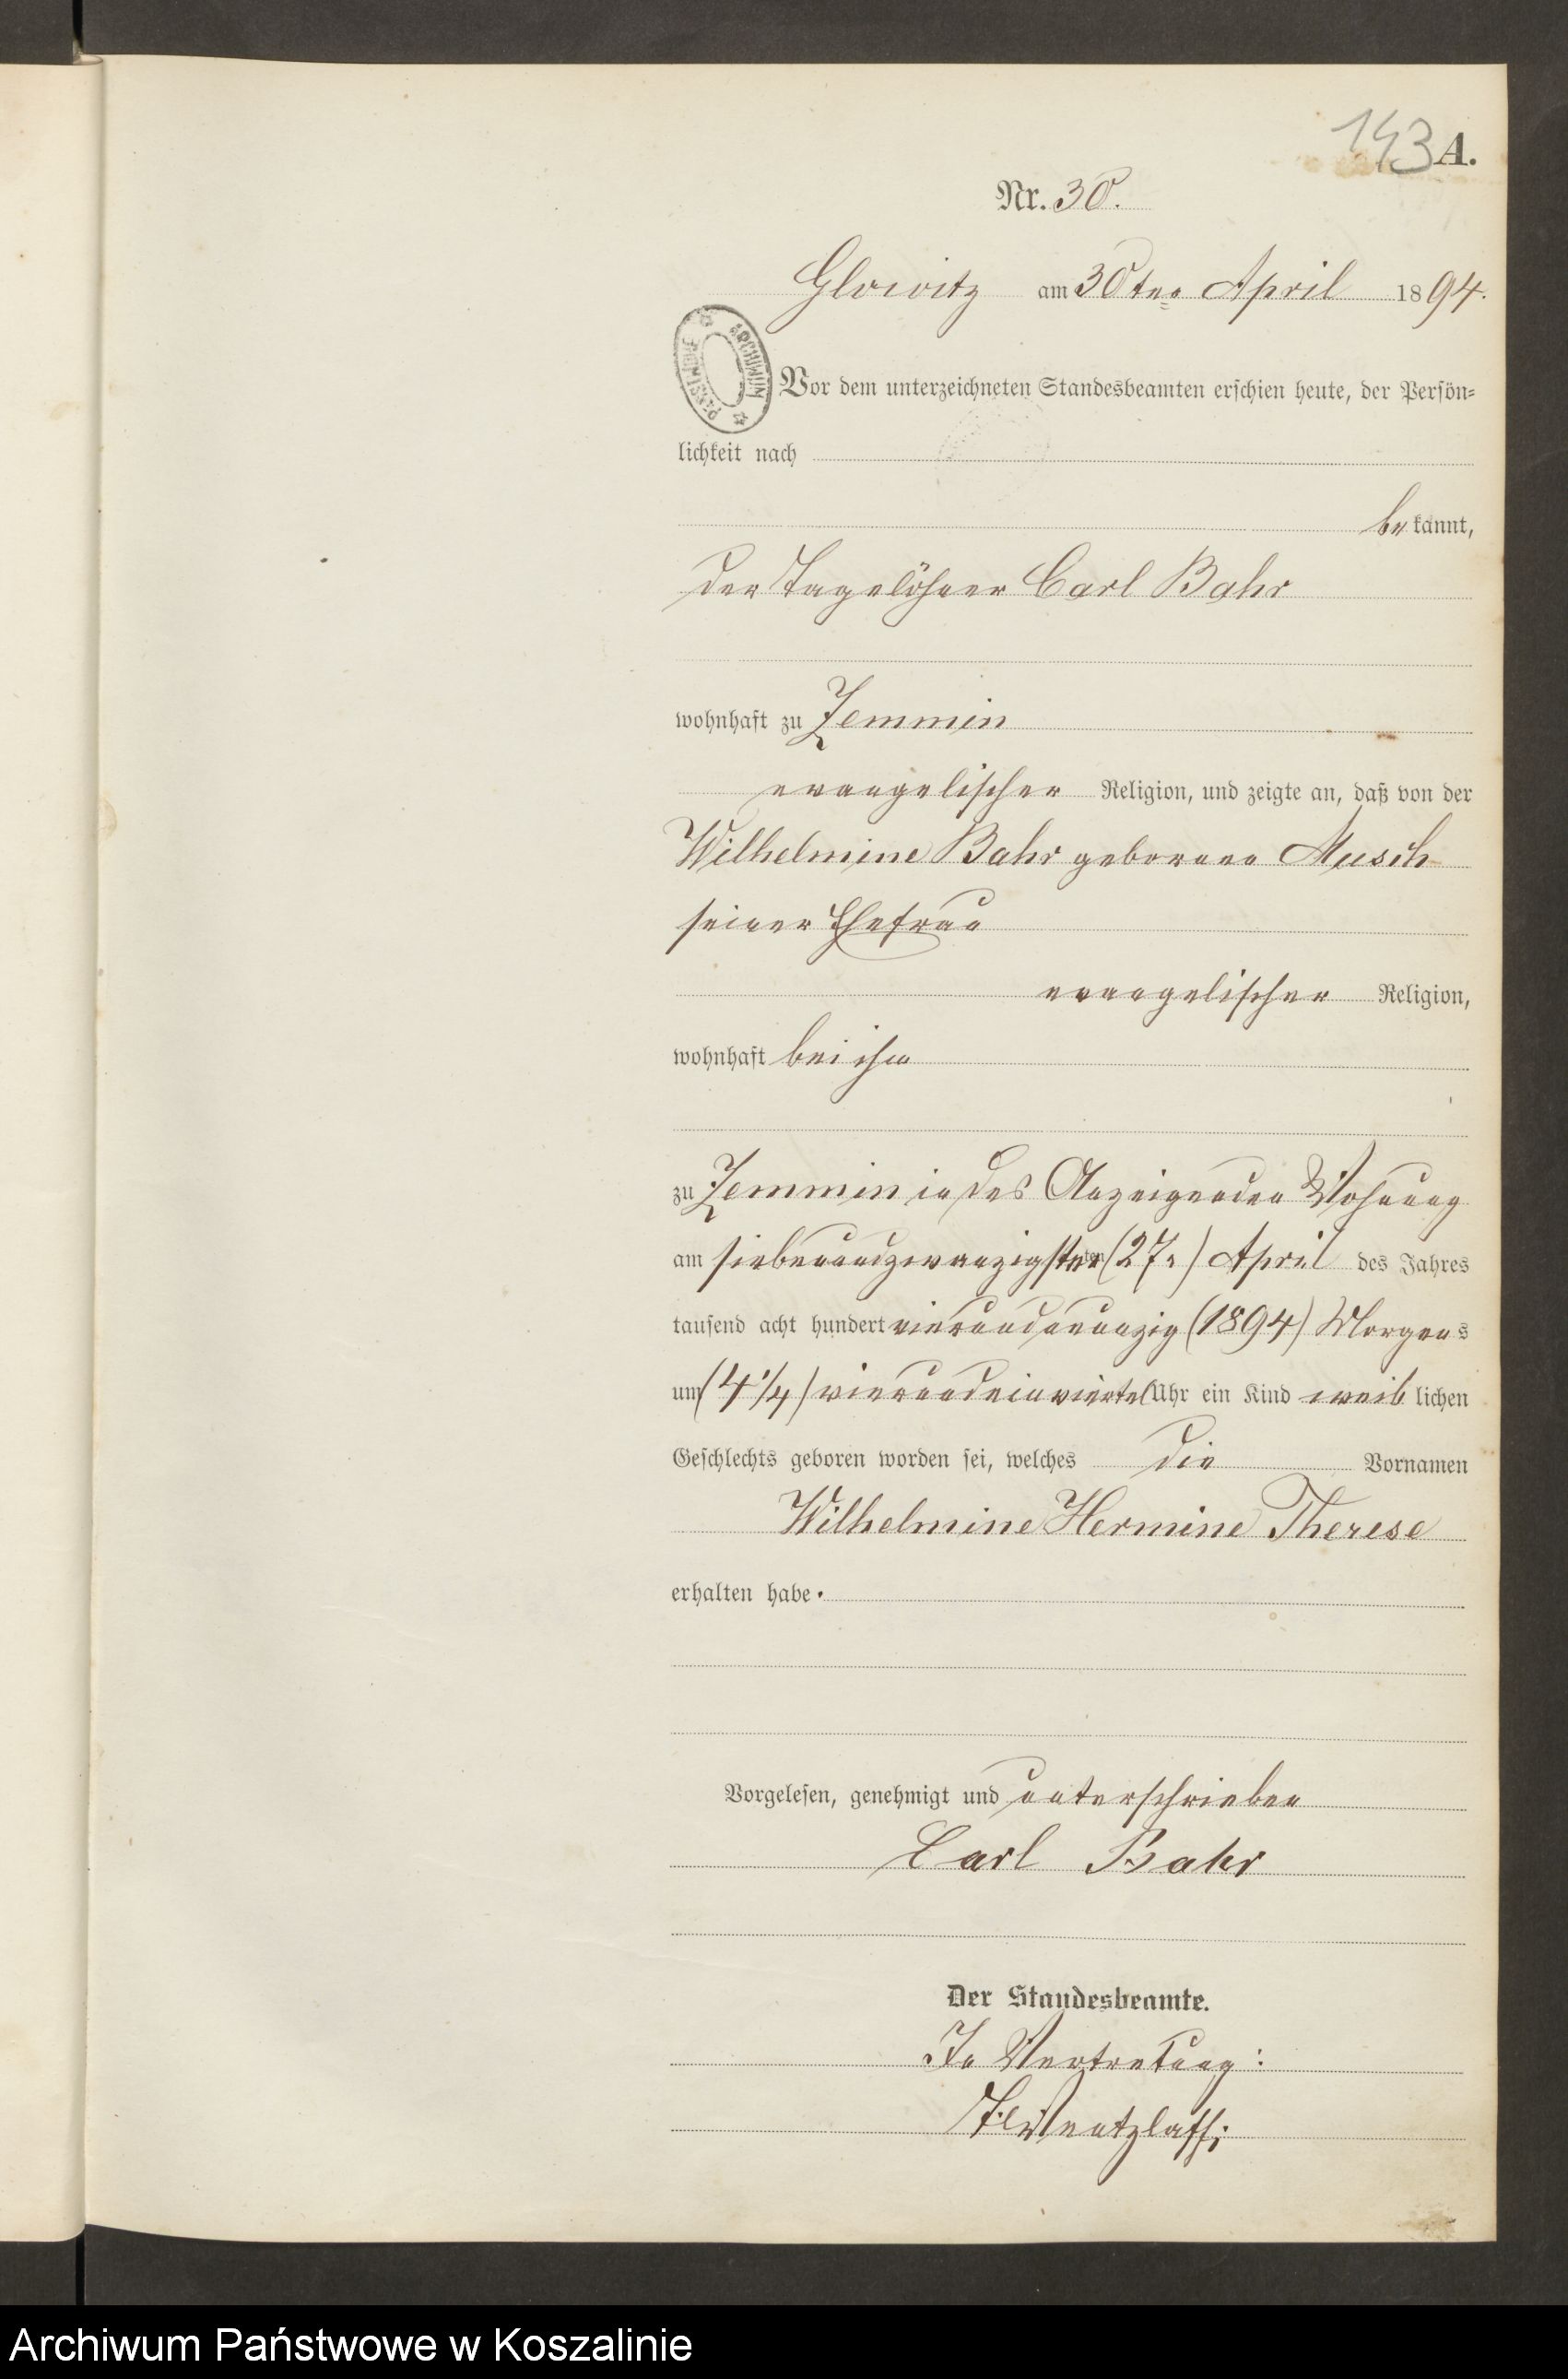 143 A.
Nr. 30.
Glowitz am 30ten April 1894.
ARCHIWUM PAŃSTWOWE
Vor dem unterzeichneten Standesbeamten erschien heute, der Persön=
lichkeit nach
bekannt,
der Tagelöhner Carl Bahr
wohnhaft zu Zemmin
evangelischer Religion, und zeigte an, daß von der
Wilhelmine Bahr geborene Musch
seiner Ehefrau
evangelischer Religion,
wohnhaft bei ihm
zu Zemmin in des Anzeigenden Wohnung
am siebenundzwanzigsten (27.) April des Jahres
tausend acht hundert vierundneunzig (1894) Morgens
um (4 1/4) vierundeinviertel Uhr ein Kind weiblichen
Geschlechts geboren worden sei, welches die Vornamen
Wilhelmine Hermine Therese
erhalten habe.
Vorgelesen, genehmigt und unterschrieben
Carl Bahr
Der Standesbeamte.
In Vertretung:
Wentzlaff;
Archiwum Państwowe w Koszalinie